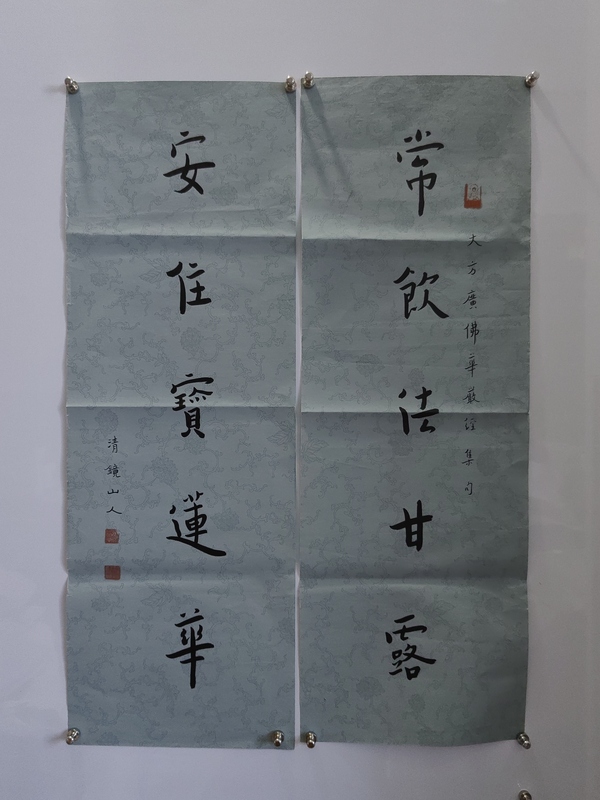 常飲法甘露
大方廣佛華嚴經集句
安住寶蓮華
清鏡山人